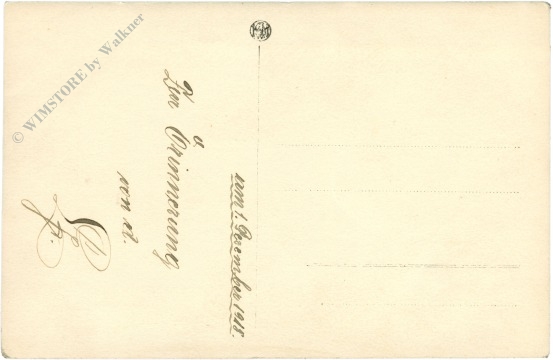 © WIMSTORE by Walkner
Zur Erinnerung
von
vom 1. Dezember 1918.